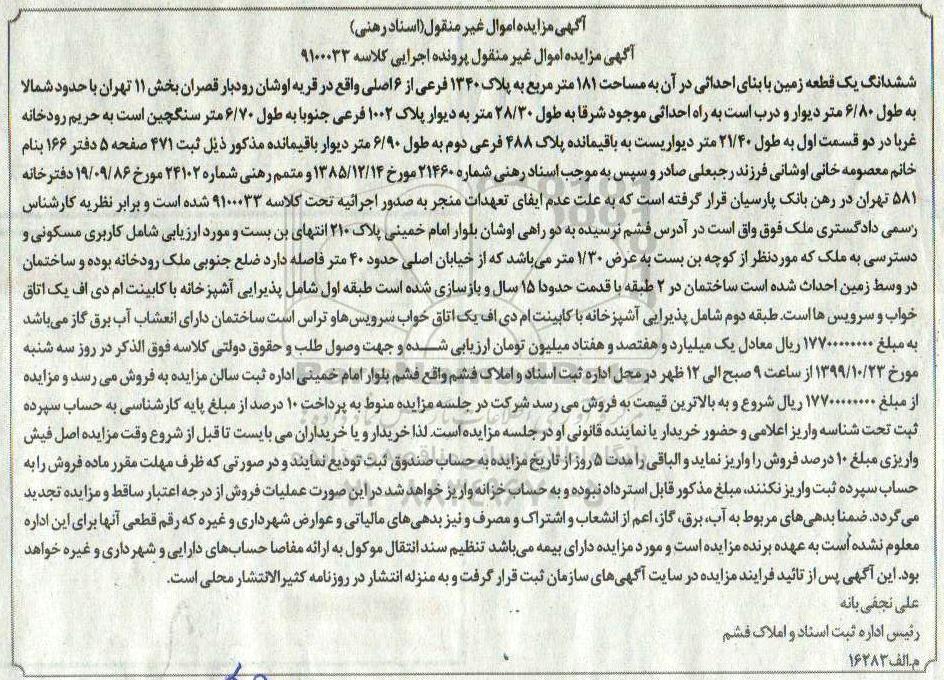 آگهی مزایده اموال غیر منقول(اسناد رهنی)
آگهی مزایده اموال غیر منقول پرونده اجرایی کلاسه ۹۱۰۰۰۳۳
ششدانگ یک قطعه زمین با بنای احداثی در آن به مساحت ۱۸۱ متر مربع به پلاک ۱۳۴۰ فرعی از ۶ اصلی واقع در قریه اوشان رودبار قصران بخش ۱۱ تهران با حدود شمالا
به طول ۶/۸۰ متر دیوار و درب است به راه احداثی موجود شرقا به طول ۲۸/۳۰ متر به دیوار پلاک ۱۰۰۲ فرعی جنوبا به طول ۶/۷۰ متر سنگچین است به حریم رودخانه
غربا در دو قسمت اول به طول ۲۱/۴۰ متر دیواریست به باقیمانده پلاک ۴۸۸ فرعی دوم به طول ۶/۹۰ متر دیوار باقیمانده مذکور ذیل ثبت ۴۷۱ صفحه ۵ دفتر ۱۶۶ بنام
خانم معصومه خانی اوشانی فرزند رجبعلی صادر و سپس به موجب اسناد رهنی شماره ۲۱۴۶۰ مورخ ۱۳۸۵/۱۲/۱۴ و متمم رهنی شماره ۲۴۱۰۲ مورخ ۱۹/۰۹/۸۶ دفترخانه
۵۸۱ تهران در رهن بانک پارسیان قرار گرفته است که به علت عدم ایفای تعهدات منجر به صدور اجرائیه تحت کلاسه ۹۱۰۰۰۳۳ شده است و برابر نظریه کارشناس
رسمی دادگستری ملک فوق واق است در آدرس فشم نرسیده به دو راهی اوشان بلوار امام خمینی پلاک ۲۱۰ انتهای بن بست و مورد ارزیابی شامل کاربری مسکونی و
دسترسی به ملک که موردنظر از کوچه بن بست به عرض ۱/۳۰ متر می‌باشد که از خیابان اصلی حدود ۴۰ متر فاصله دارد ضلع جنوبی ملک رودخانه بوده و ساختمان
در وسط زمین احداث شده است ساختمان در ۲ طبقه با قدمت حدودا ۱۵ سال و بازسازی شده است طبقه اول شامل پذیرایی آشپزخانه با کابینت ام دی اف یک اتاق
خواب و سرویس ها است. طبقه دوم شامل پذیرایی آشپزخانه با کابینت ام دی اف یک اتاق خواب سرویس‌ها و تراس است ساختمان دارای انعشاب آب برق گاز می‌باشد
به مبلغ ۱۷۷۰۰۰۰۰۰۰۰ ریال معادل یک میلیارد و هفتصد و هفتاد میلیون تومان ارزیابی شده و جهت وصول طلب و حقوق دولتی کلاسه فوق الذکر در روز سه شنبه
مورخ ۱۳۹۹/۱۰/۲۳ از ساعت ۹ صبح الی ۱۲ ظهر در محل اداره ثبت اسناد و املاک فشم واقع فشم بلوار امام خمینی اداره ثبت سالن مزایده به فروش می رسد و مزایده
از مبلغ ۱۷۷۰۰۰۰۰۰۰۰ ریال شروع و به بالاترین قیمت به فروش می رسد شرکت در جلسه مزایده منوط به پرداخت ۱۰ درصد از مبلغ پایه کارشناسی به حساب سپرده
ثبت تحت شناسه واریز اعلامی و حضور خریدار یا نماینده قانونی او در جلسه مزایده است. لذا خریدار و یا خریداران می بایست تا قبل از شروع وقت مزایده اصل فیش
واریزی مبلغ ۱۰ درصد فروش را واریز نماید و الباقی را مدت ۵ روز از تاریخ مزایده به حساب صندوق ثبت تودیع نمایند و در صورتی که ظرف مهلت مقرر ماده فروش را به
حساب سپرده ثبت واریز نکنند، مبلغ مذکور قابل استرداد نبوده و به حساب خزانه واریز خواهد شد در این صورت عملیات فروش از درجه اعتبار ساقط و مزایده تجدید
می‌گردد. ضمنا بدهی‌های مربوط به آب، برق، گاز، اعم از انشعاب و اشتراک و مصرف و نیز بدهی‌های مالیاتی و عوارض شهرداری و غیره که رقم قطعی آنها برای این اداره
معلوم نشده است به عهده برنده مزایده است و مورد مزایده دارای بیمه می‌باشد تنظیم سند انتقال موکول به ارائه مفاصا حساب‌های دارایی و شهرداری و غیره خواهد
بود. این آگهی پس از تائید فرایند مزایده در سایت آگهی‌های سازمان ثبت قرار گرفت و به منزله انتشار در روزنامه کثیرالانتشار محلی است.
علی نجفی بانه
رئیس اداره ثبت اسناد و املاک فشم
م.الف ۱۶۲۸۳